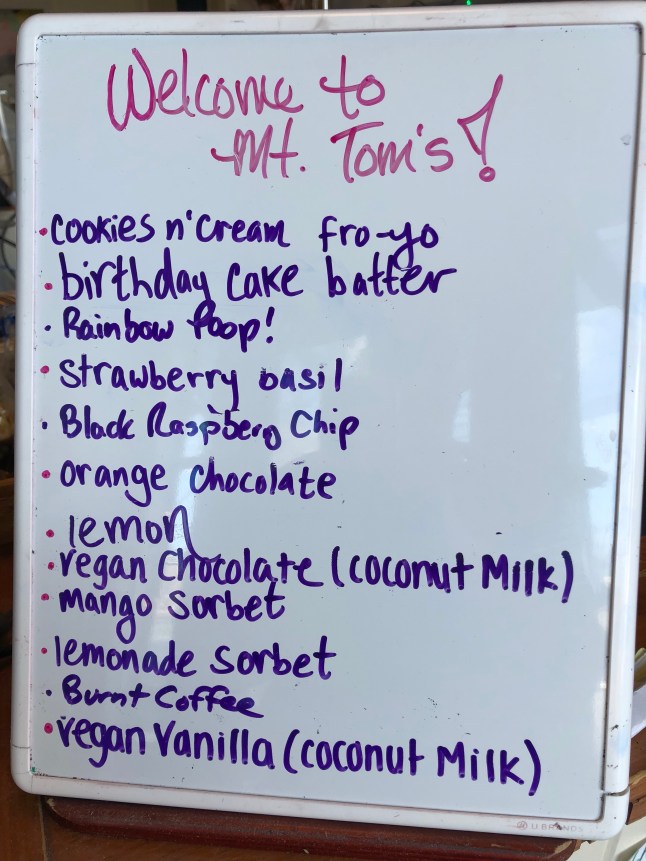 Welcome to
Mt. Tom's!
• cookies n' cream fro-yo
• birthday cake batter
• Rainbow Poop!
• strawberry basil
• Black Raspberry Chip
• orange chocolate
• lemon
• vegan chocolate (coconut Milk)
• mango sorbet
• lemonade sorbet
• Burnt Coffee
• vegan vanilla (coconut Milk)
U BRANDS